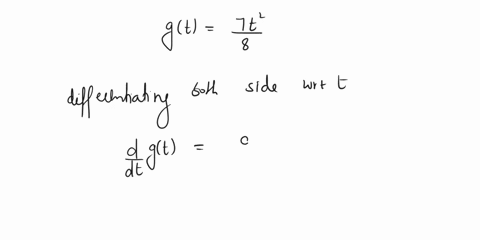 g(t) = 7t²/8
differentiating both side wrt t
d/dt g(t) =